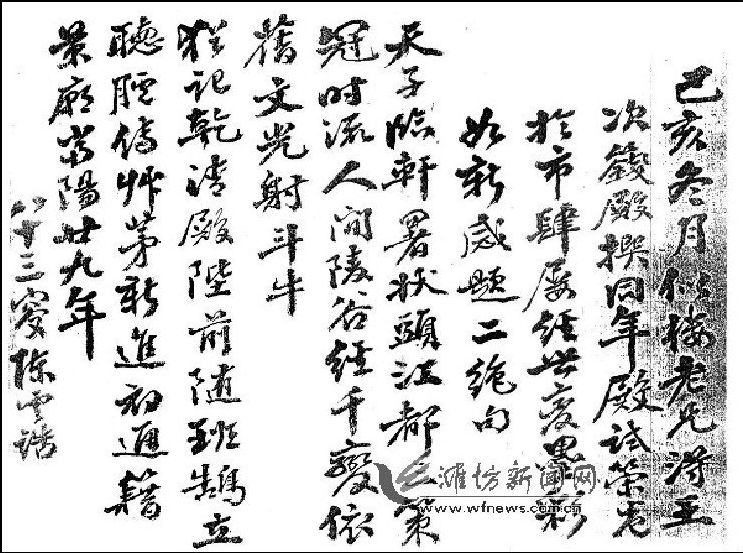 己亥冬月似楼老兄得王
次篯殿撰同年殿试策
於市肆屡经世变墨彩
如新感题二绝句
天子临轩署状头江都策
冠时流人间陵谷经千变依
旧文光射斗牛
犹记乾清殿陛前随班鹄立
聽胪传艸茅新進初通籍
景廟当陽廿九年
八十三叟陈云诰
潍坊新闻网
www.wfnews.com.cn